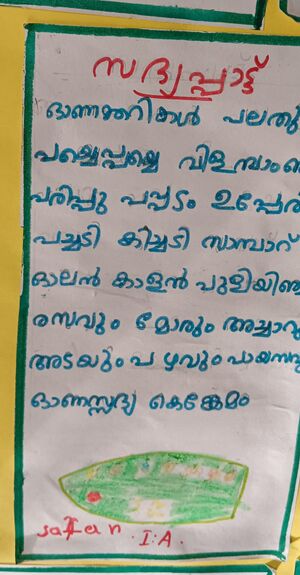 സദ്യപ്പാട്ട്
ഓണക്കറികൾ പലതു
പച്ചെപ്പയ്യെ വിളമ്പാം
പരിപ്പു പപ്പടം ഉപ്പേരി
പച്ചടി കിച്ചടി സാമ്പാറ്
ഓലൻ കാളൻ പുളിയിഞ്ചി
രസവും മോരും അച്ചാറു
അടയും പഴവും പായസവു
ഓണസ്സദ്യ കെങ്കേമം
I.A.